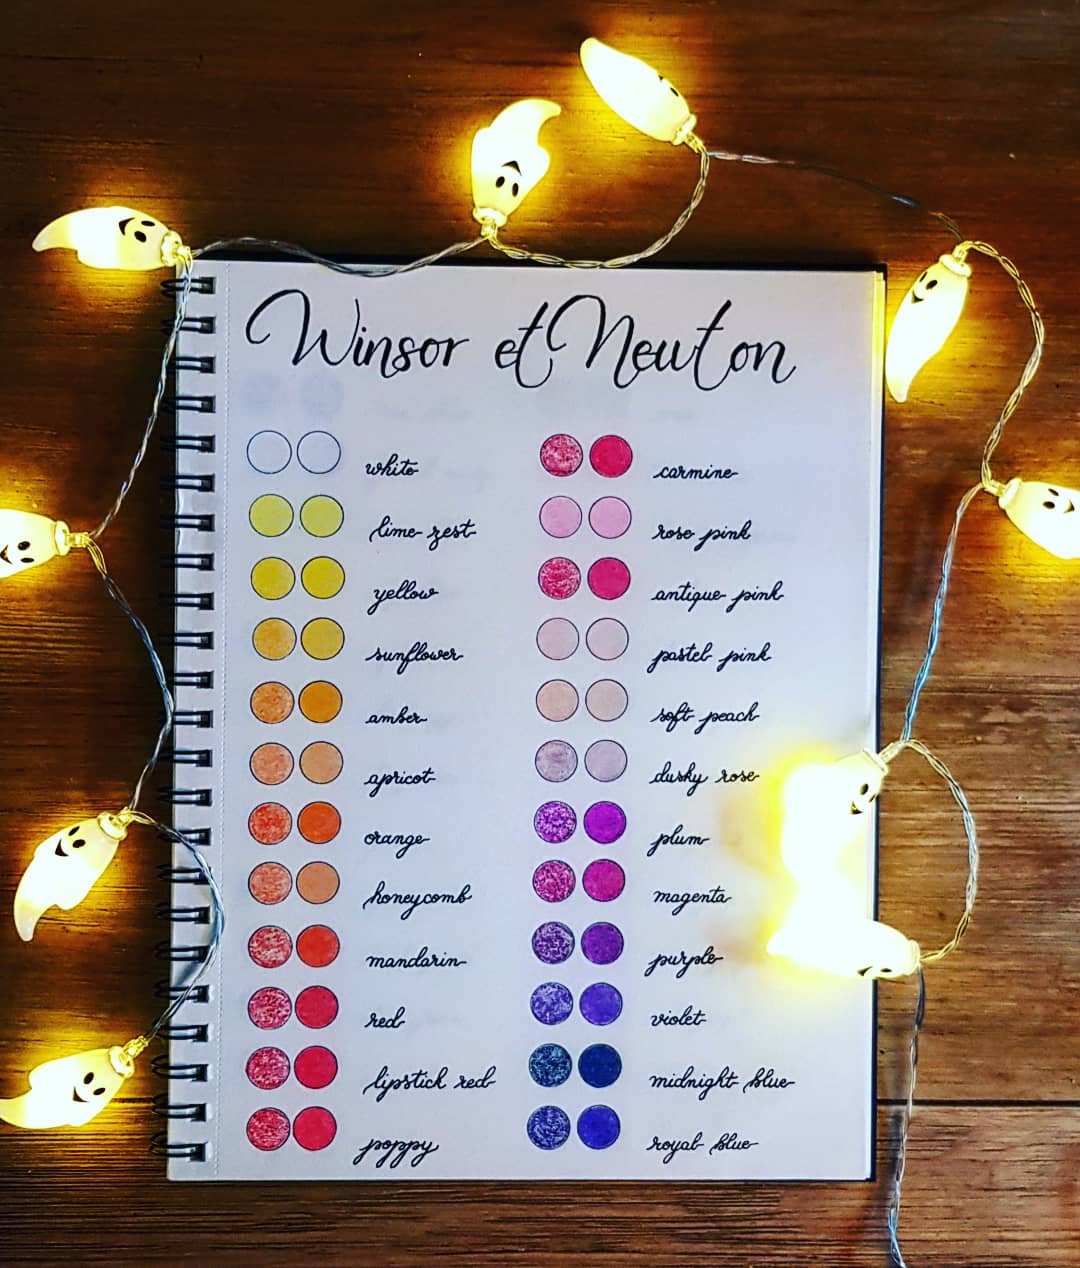 Winsor et Newton
white
lime zest
yellow
sunflower
amber
apricot
orange
honeycomb
mandarin
red
lipstick red
poppy
carmine
rose pink
antique pink
pastel pink
soft peach
dusky rose
plum
magenta
purple
violet
midnight blue
royal blue